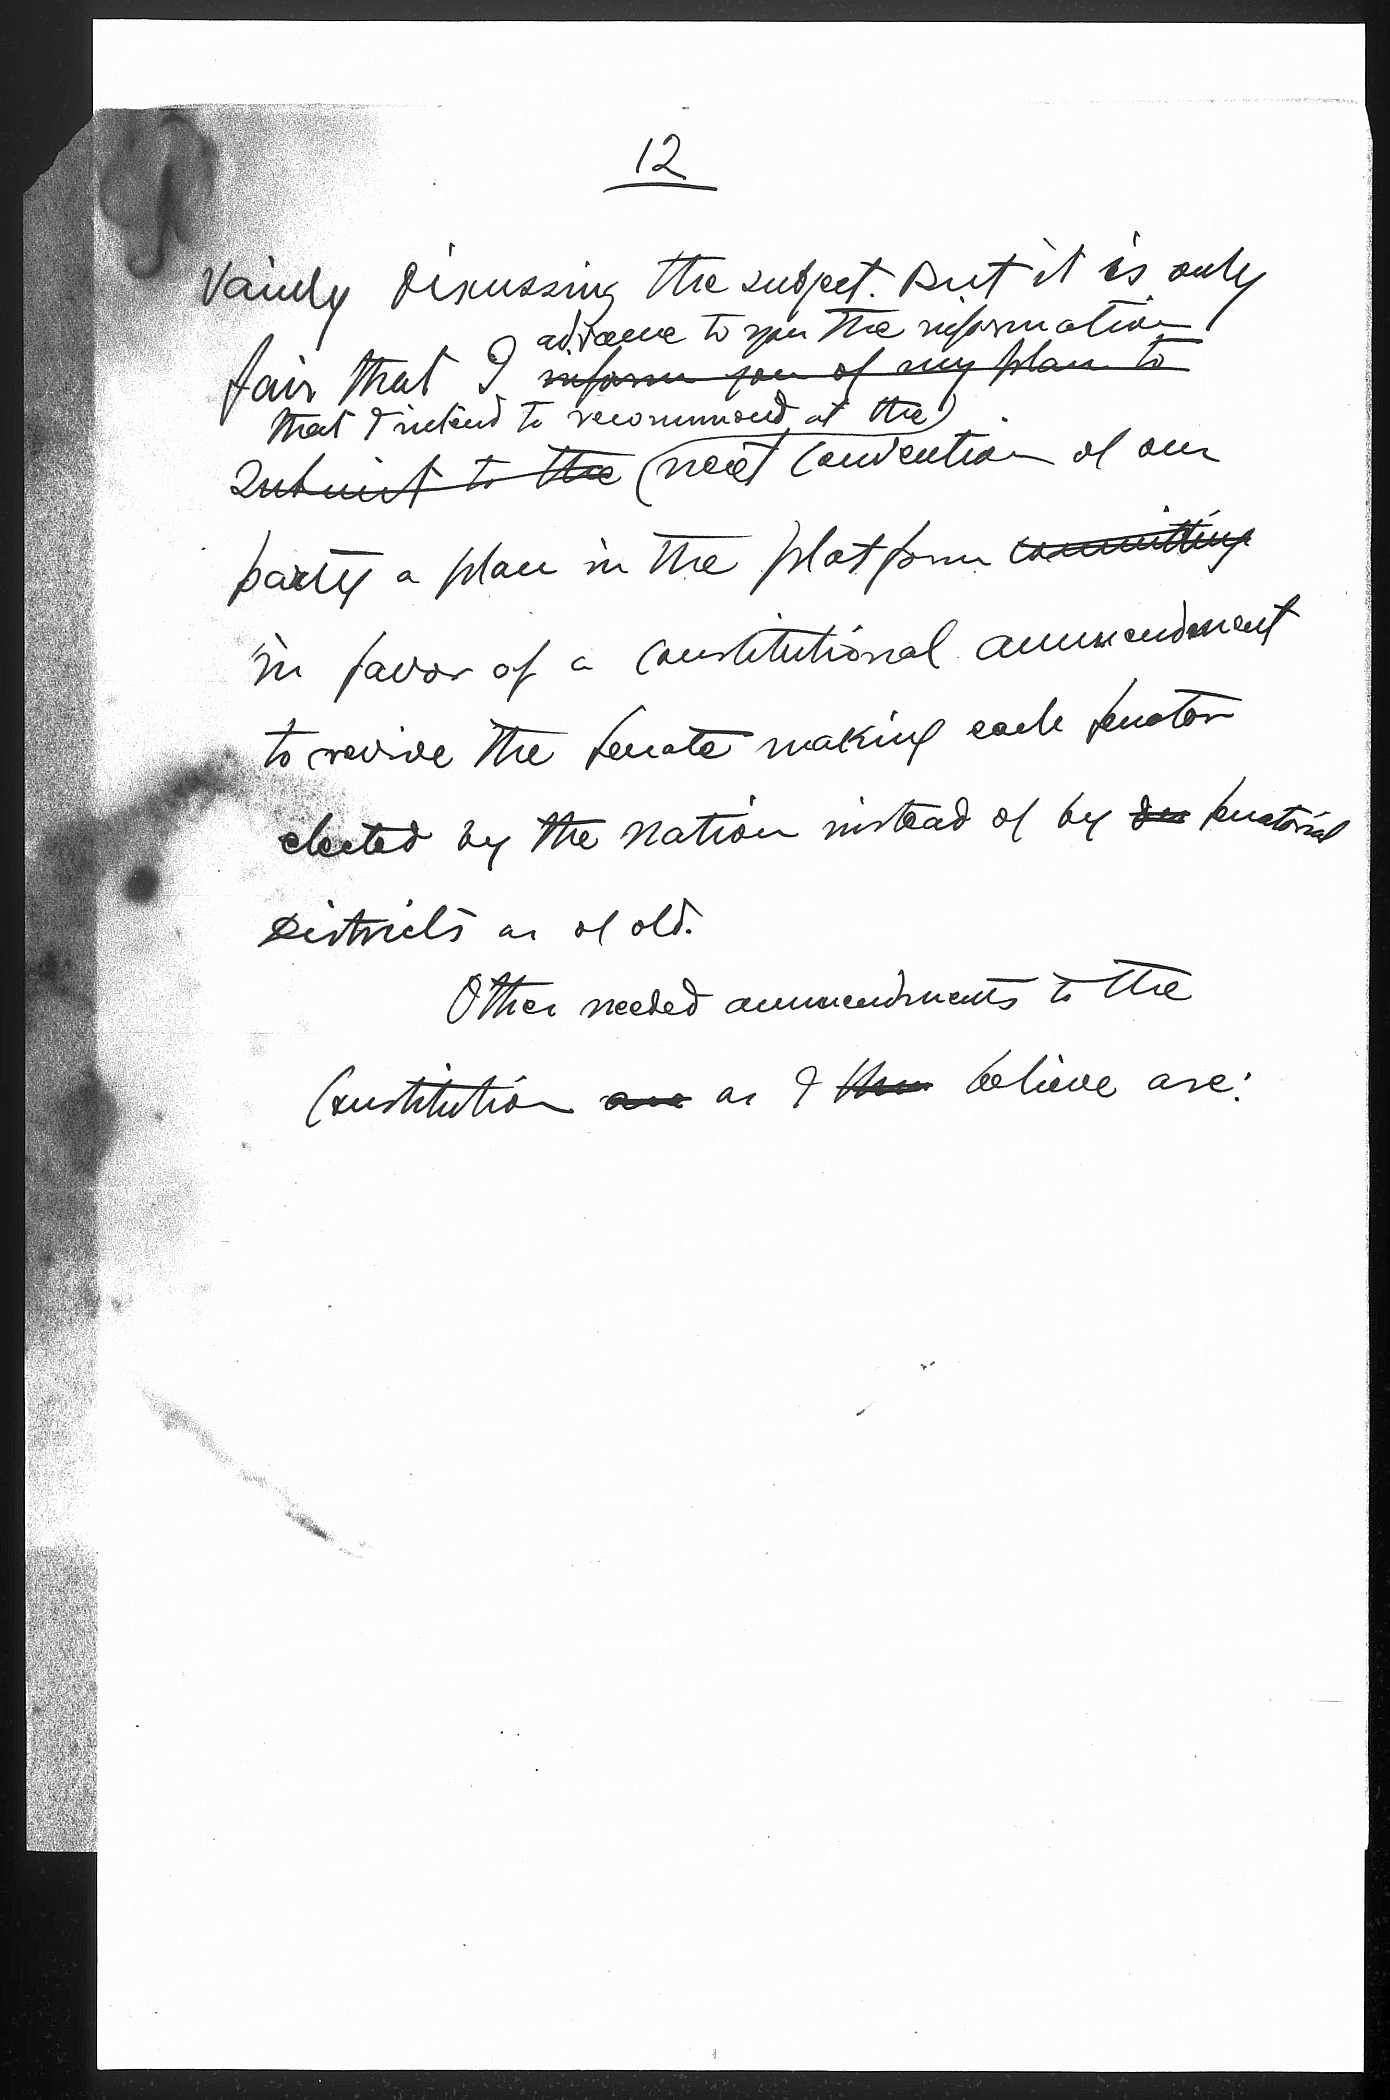 12
Vainly discussing the subject. But it is only
advance to you the information
fair that I inform you of my plan to
that I intend to recommend at the
submit to the next Convention of our
party a plan in the platform committing
in favor of a constitutional ammendment
to revive the Senate making each Senator
elected by the nation instead of by Senatorial
districts as of old.
Other needed ammendments to the
Constitution are as I believe are: